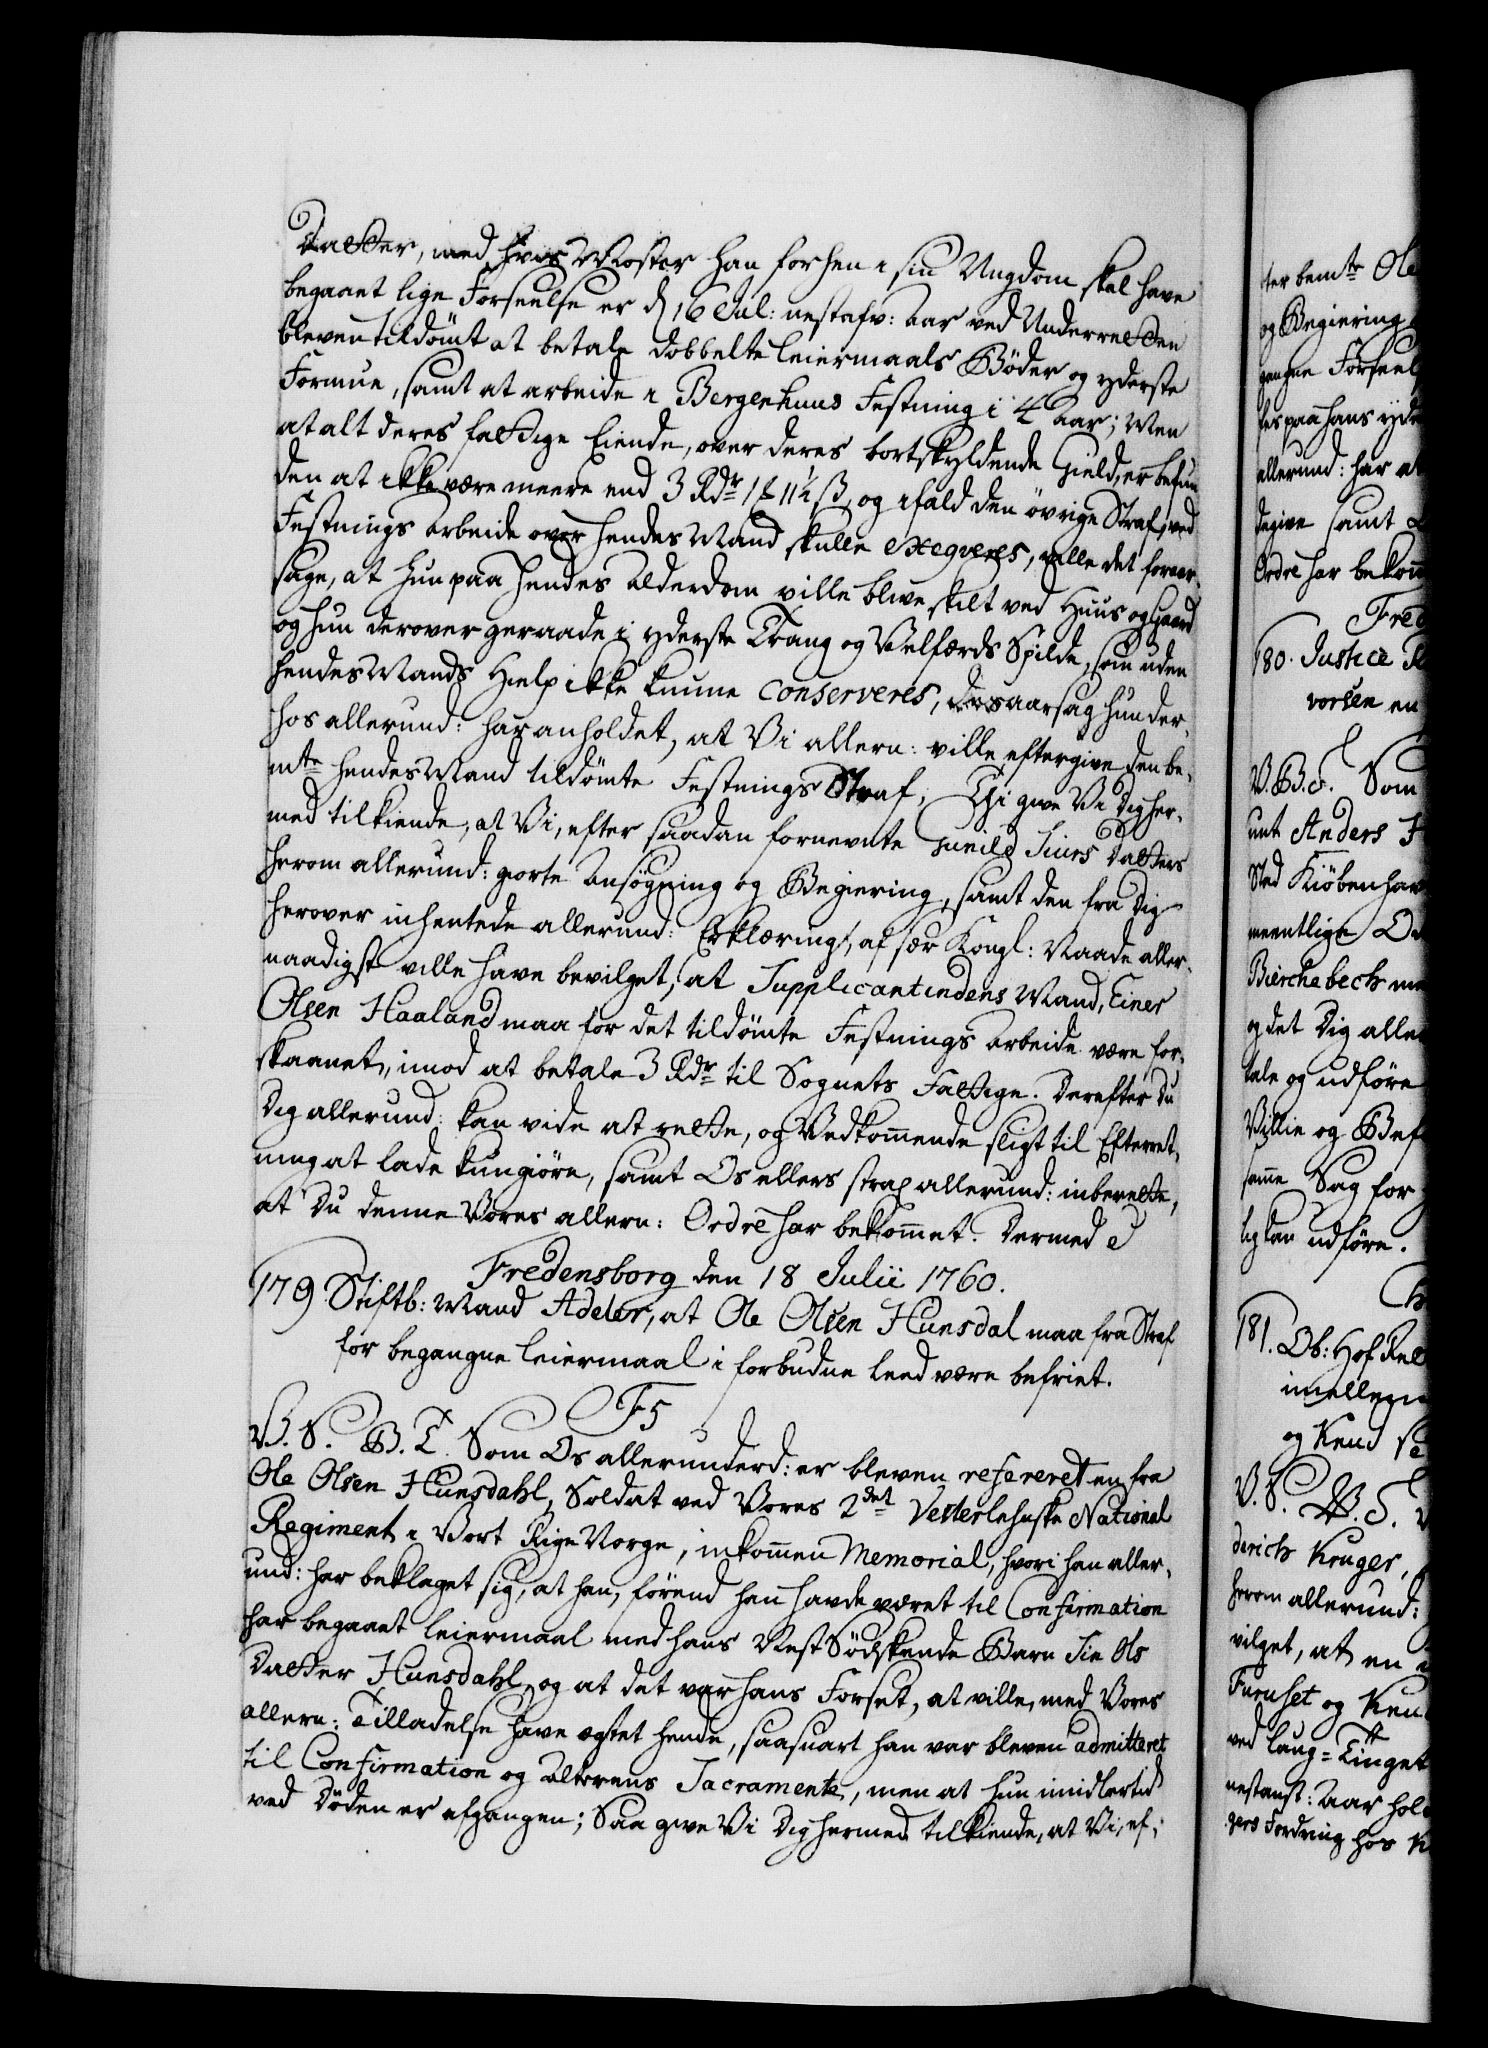 Datter, med hvis Moster han forhen i sin Ungdom skal have
begaaet lige Forseelse er d. 16 Jul: nestafv: Aar ved Underretten
bleven tildömt at betale dobbelte Leiermaals Böder og yderste
Formue, samt at arbeide i Bergenhuus Festning i 4 Aar; Men
at alt deres fattige Eiende, over deres bortskyldende Gield, er befun
den at ikke være meere end 3 Rdr 1 ¥ 11½ ß, og ifald den övrige Straf, ved
Festnings Arbeide over hendes Mand skulle exeqveres, ville det foraar-
sage, at hun paa hendes Alderdom ville blive skilt ved Huus og Gaard
og hun derover geraade i yderste Trang og Velfærds Spilde, som uden
hendes Mands Hielp ikke kunne conserveres, desaarsag hun der-
hos allerund: har anholdet, at Vi allern: ville eftergive den be-
mte hendes Mand tildömte Festnings Straf, Thi give Vi Dig her-
med tilkiende, at Vi, efter saadan fornevnte Gunild Siurs Datters
herom allerund: giorte Ansögning og Begiering, samt den fra Dig
herover inhentede allerund: Erklæring, af sær Kongl: Naade aller-
naadigst ville have bevilget, at Supplicantindens Mand, Einer
Olsen Haaland maa for det tildömte Festnings Arbeide være for-
skaanet, imod at betale 3 Rdr til Sognets Fattige. Derefter Du
Dig allerund: kan vide at rette, og Vedkommende sligt til Efterret-
ning at lade kungiöre, samt Os ellers strax allerund: inberette,
at Du denne Vores allern: Ordre har bekommet. Dermed
Fredensborg den 18 Julii 1760.
179 Stiftb: Mand Adeler, at Ole Olsen Hunsdal maa fra Straf
for begangne Leiermaal i forbudne Leed være befriet.
F5
V. S. B. T. Som Os allerunderd: er bleven refereret en fra
Ole Olsen Hunsdahl, Soldat ved Vores 2det Vesterlehnske National
Regiment i Vort Rige Norge, inkommen Memorial, hvori han aller-
und: har beklaget sig, at han, förend han havde været til Confirmation
har begaaet Leiermaal med hans Nest Södskende Barn Siv Ols
Datter Hunsdahl, og at det var hans Forset, at ville, med Vores
allern: Tilladelse have ægtet hende, saasnart han var bleven admitteret
til Confirmation og Alterens Sacramente, men at hun imidlertid
ved Döden er afgangen; Saa give Vi Dig hermed tilkiende, at Vi, ef-
ter bemte Ole
og Begiering
gangne Forseel
fes paa hans yder
allerund: har at
degive samt
Ordre har bekom
Fred
180. Justice R
vorsen en
V.B.T. Som
unt Anders
Sted Kiöbenhav
mentlige
Bierchebech
og det Dig aller
tale og udföre
Villie og Bef
samme Sag for
lig kan udföre.
Ch
181. Ob: Hof Ret
imellem
og Knud
V. S. B. T.
derich Kruger,
herom allerund:
vilget, at en
Furuset og Knu
ved Laug-Tinget
nestanst: Aar hold
gers Fordring hos K